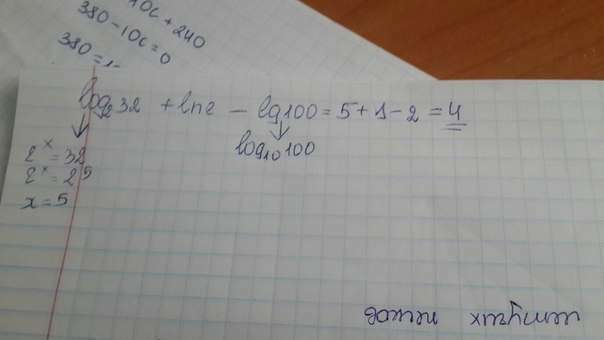 10c + 240
380 - 10c = 0
380 =
log₂32 + lne - lg100 = 5 + 1 - 2 = 4
log₁₀100
2ˣ = 32
2ˣ = 2⁵
x = 5